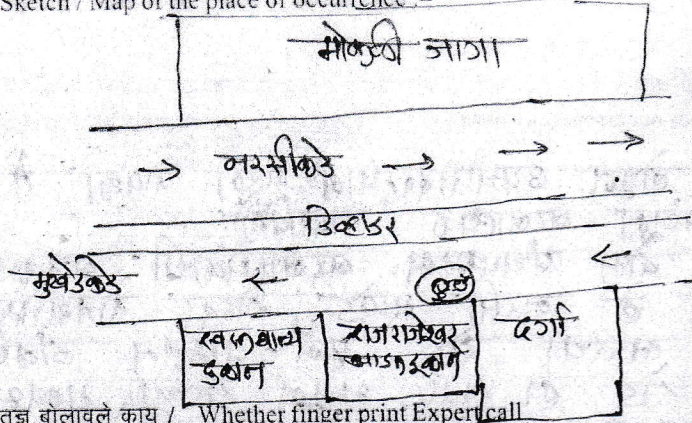 Sketch / Map of the place of occurrence :-
मोकळी जागा
→ नरसीकडे → → →
डिव्हाडर
मुखेडकडे ← ←
दर्गा
राजराजेश्वर
दुकान
तज्ञ बोलावले काय / Whether finger print Expert call